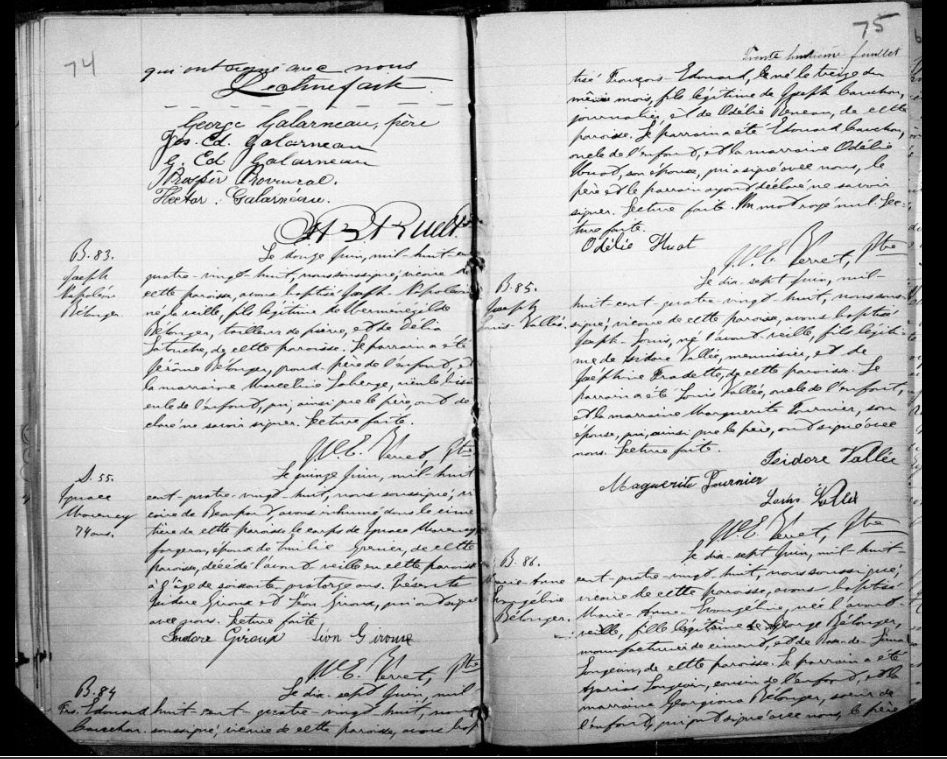 74
qui ont signé avec nous
Lecture faite.
George Galarneau, père
Jos. Ed. Galarneau
G. Ed Galarneau
Prosper Provencal.
Hector. Galarneau.
B. 83.
Joseph
Napoléon
Bélanger
Le douze Juin, mil-huit-cent
quatre-vingt-huit, nous soussigné, vicaire de
cette paroisse, avons baptisé Joseph-Napoléon
né la veille, fils légitime de Herménégilde
Bélanger, tailleur de pierre, et de Délia
Latouche, de cette paroisse. Le parrain a été
Jérôme Bélanger, grand-père de l'enfant, et
la marraine Marceline Laberge,
de l'enfant, qui, ainsi que le père ont dé
claré ne savoir signer. Lecture faite.
Verret, Ptre
S. 55.
Ignace
74 ans.
Le quinze Juin, mil-huit
cent-quatre-vingt-huit, nous soussigné, vi
caire de Beauport avons inhumé dans le cime
tière de cette paroisse le corps de Ignace
forgeron, époux de Emilie Grenier, de cette
paroisse, décédé l'avant veille en cette paroisse
à l'âge de soixante quatorze ans. Présents
Isidore Giroux et Léon Giroux, qui ont signé
avec nous. Lecture faite.
Isidore Giroux Léon Giroux
Verret, Ptre
B. 84
Frs. Edouard
Cauchon.
Le dix-sept Juin, mil
huit-cent-quatre-vingt-huit, nous
soussigné, vicaire de cette paroisse, avons bap
75
Trente huitième feuillet
tisé François Edouard, né le treize du
même mois, fils légitime de Joseph Cauchon,
journalier, et de Odélie, de cette
paroisse. Le parrain a été Edouard Cauchon,
oncle de l'enfant, et la marraine Odélie
Huot, son épouse, qui a signé avec nous, le
père et le parrain ayant déclaré ne savoir
signer. Lecture faite. Un mot rayé nul. Lec-
ture faite.
Odélie Huot
Verret, Ptre
B. 85.
Joseph
Louis Vallée.
Le dix-sept Juin, mil-
huit-cent-quatre-vingt-huit, nous sous-
signé, vicaire de cette paroisse, avons baptisé
Joseph-Louis, né l'avant-veille, fils légiti-
me de Isidore Vallée, menuisier, et de
Joséphine Fradette, de cette paroisse. Le
parrain a été Louis Vallée, oncle de l'enfant,
et la marraine Marguerite Fournier, son
épouse, qui, ainsi que le père, ont signé avec
nous. Lecture faite.
Isidore Vallée
Maguerite Fournier
Louis Vallée
Verret, Ptre
B. 86.
Marie-Anne
Evangéline
Bélanger.
Le dix-sept Juin, mil-huit-
cent-quatre-vingt-huit, nous soussigné,
vicaire de cette paroisse, avons baptisé
Marie-Anne-Evangéline, née l'avant-
veille, fille légitime de George Bélanger,
manufacturier de ciment, et de
de cette paroisse. Le parrain a été
cousin de l'enfant, et la
marraine Georgiana Bélanger, soeur de
l'enfant, qui ont signé avec nous, le père